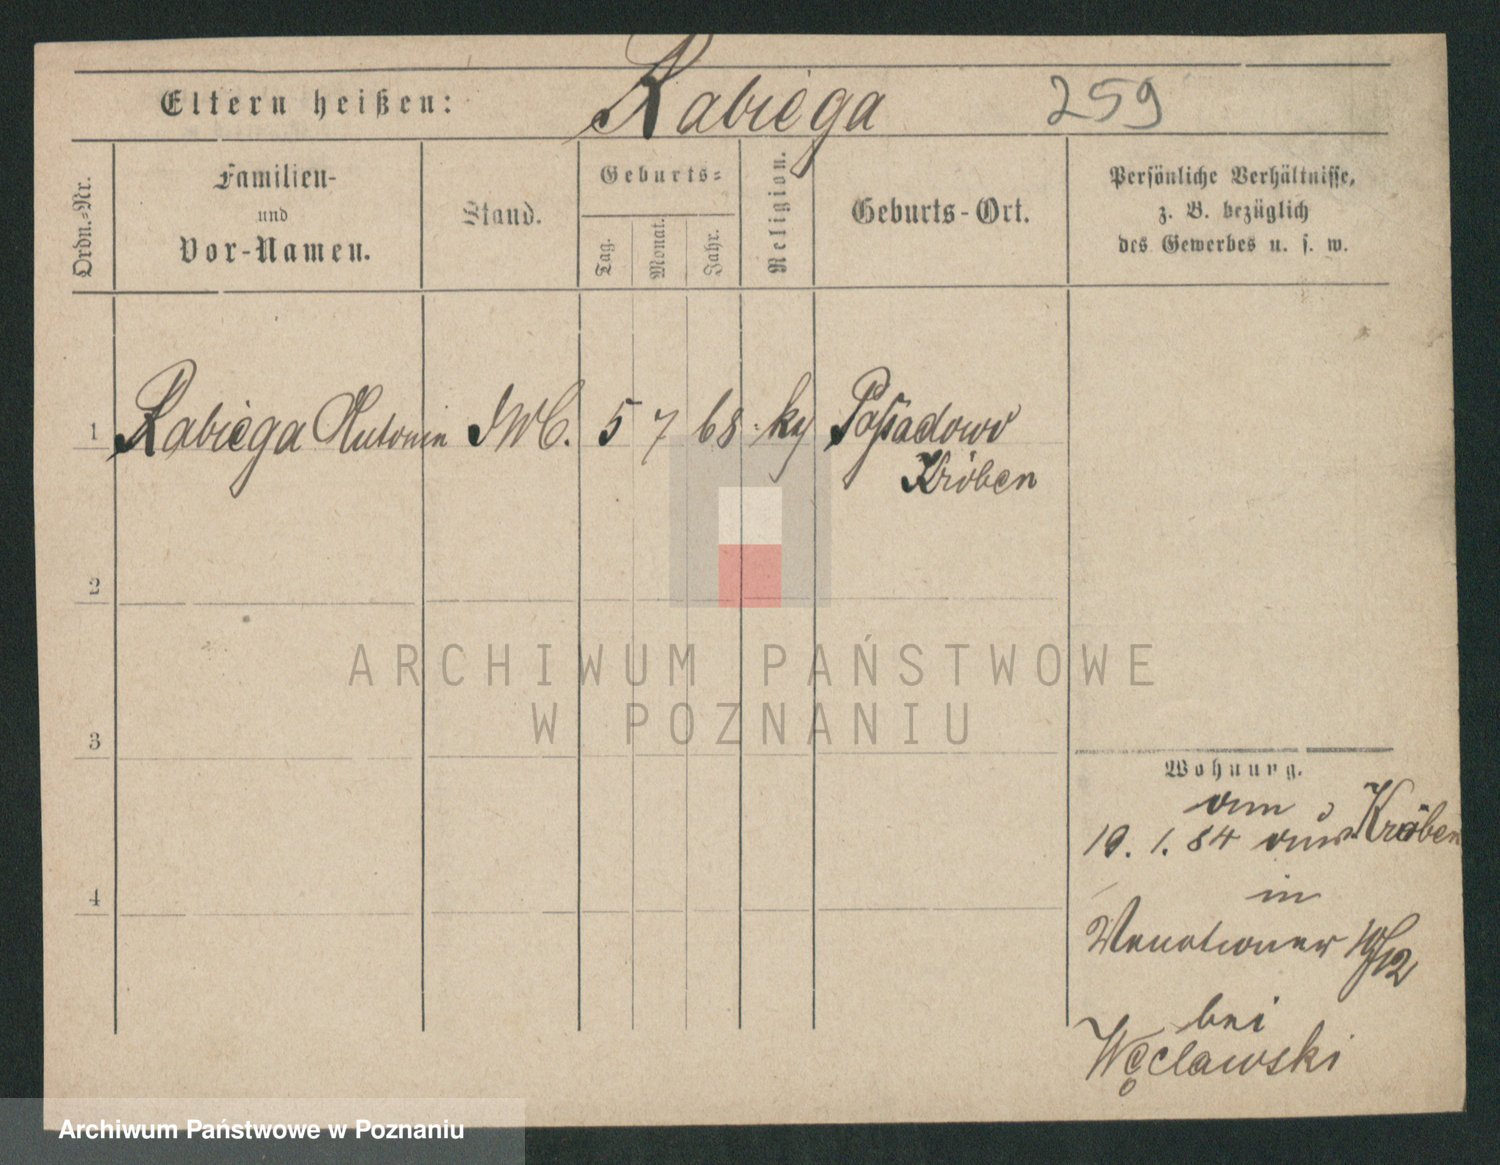 Eltern heißen: Rabiega 259
Ordn.-Nr.
Familien-
und
Vor-Namen.
Stand.
Geburts-
Tag.
Monat.
Jahr.
Religion.
Geburts-Ort.
Persönliche Verhältnisse,
z. B. bezüglich
des Gewerbes u. s. w.
1 Rabiega Antonin 5 7 68 Kröben
2
3
4
ARCHIWUM PAŃSTWOWE
W POZNANIU
Wohnung.
am
19. 1. 84 aus Kröben
in
bei
Węclawski
Archiwum Państwowe w Poznaniu